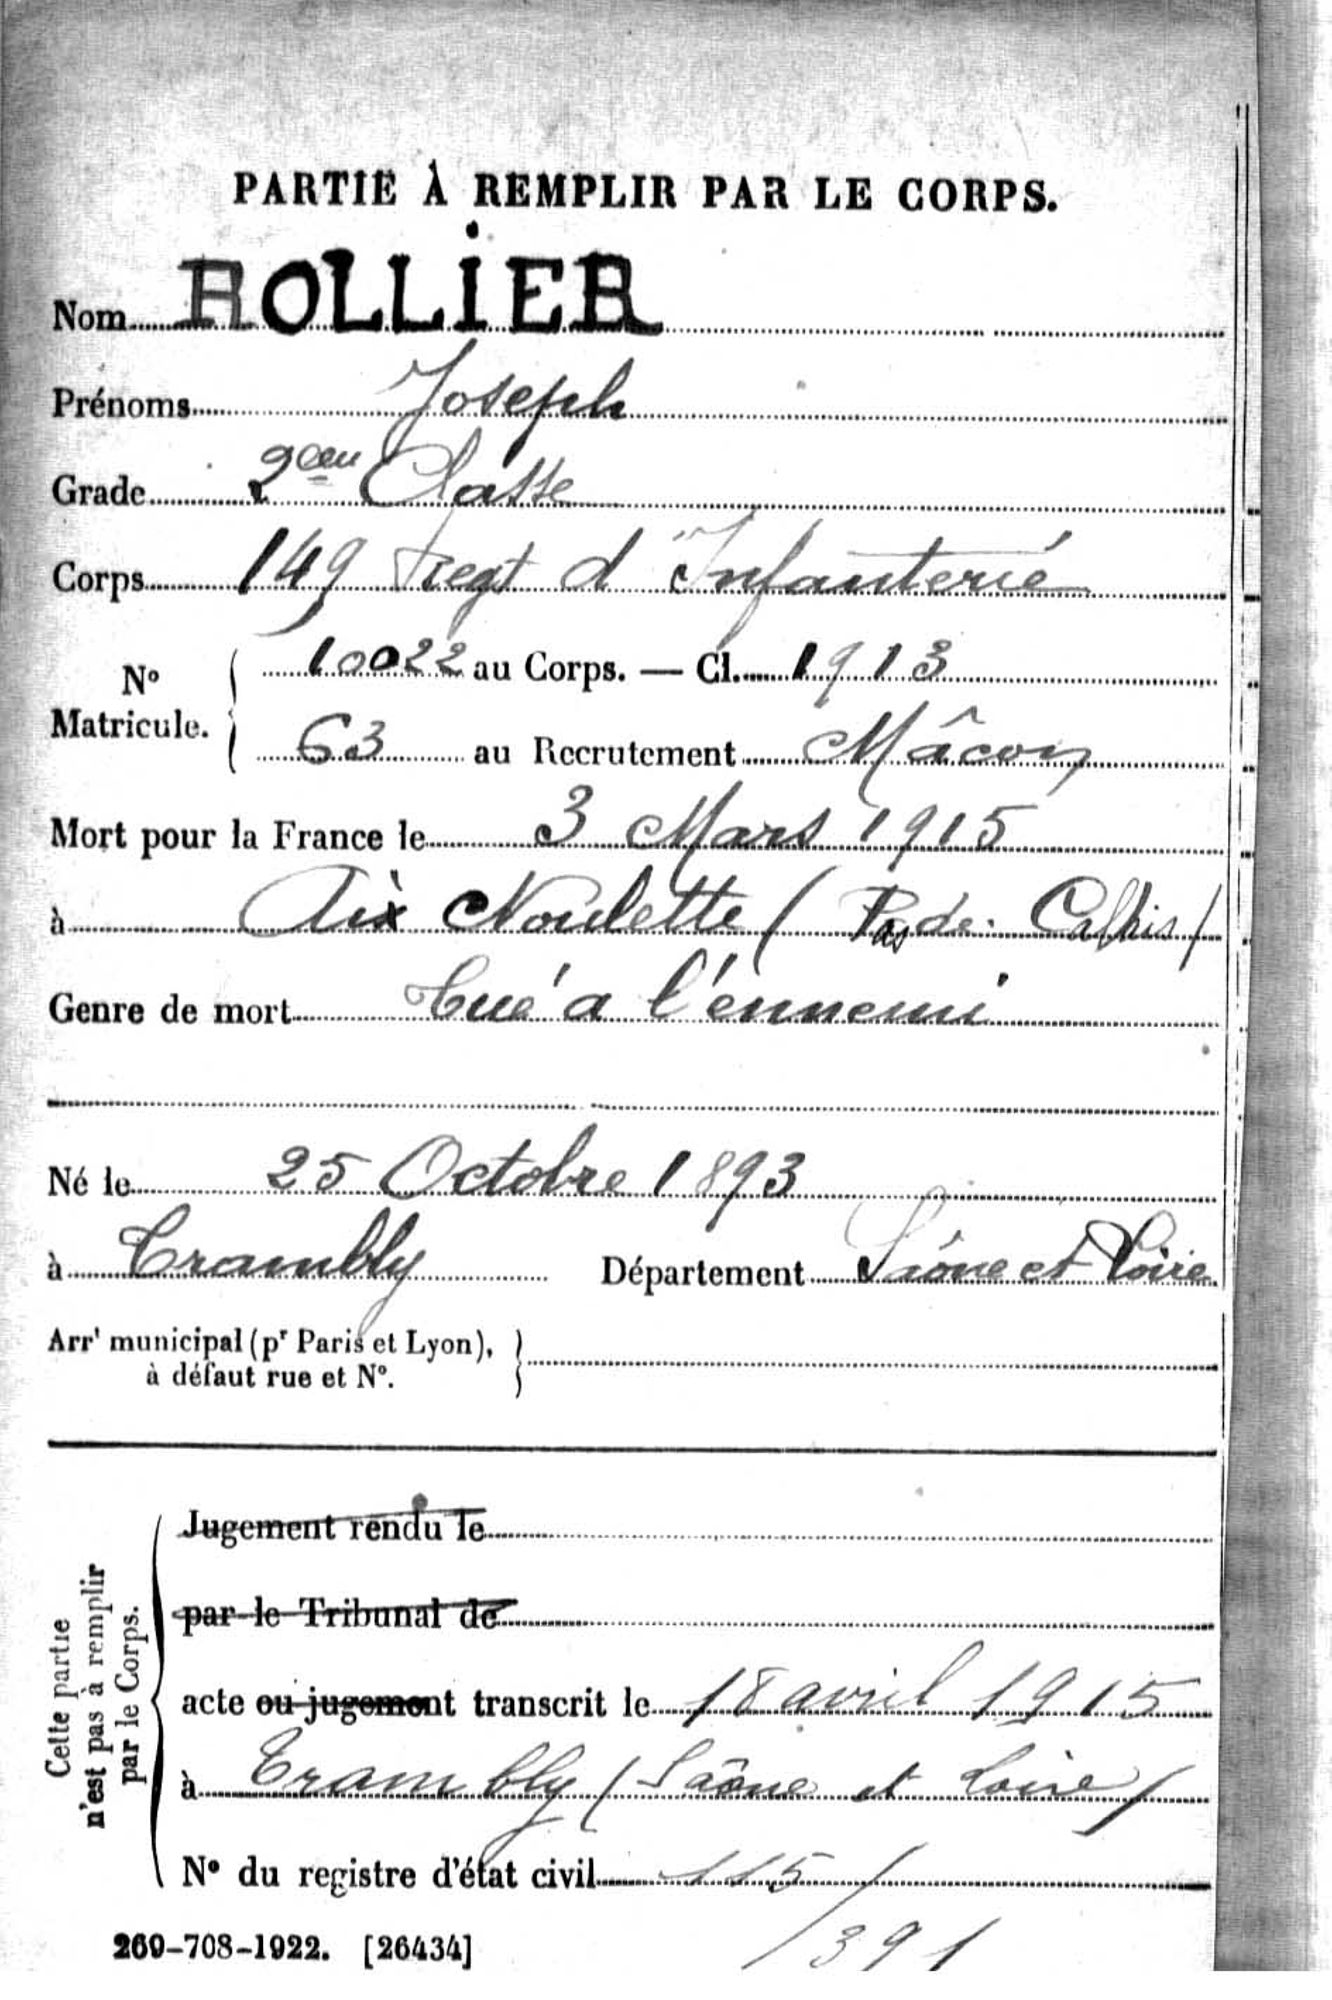 PARTIE À REMPLIR PAR LE CORPS.
Nom ROLLIER
Prénoms Joseph
Grade 2eme Classe
Corps 149 Regt d'Infanterie
N° Matricule. 10022 au Corps. — Cl. 1913
63 au Recrutement Mâcon
Mort pour la France le 3 Mars 1915
à Aix Noulette (Pas de Calais)
Genre de mort tué à l'ennemi
Né le 25 Octobre 1893
à Trambly Département Saône et Loire
Arrt municipal (pr Paris et Lyon),
à défaut rue et N°.
Cette partie
n'est pas à remplir
par le Corps.
Jugement rendu le
par le Tribunal de
acte ou jugement transcrit le 18 avril 1915
à Trambly (Saône et Loire)
N° du registre d'état civil 115/
/391
269-708-1922. [26434]